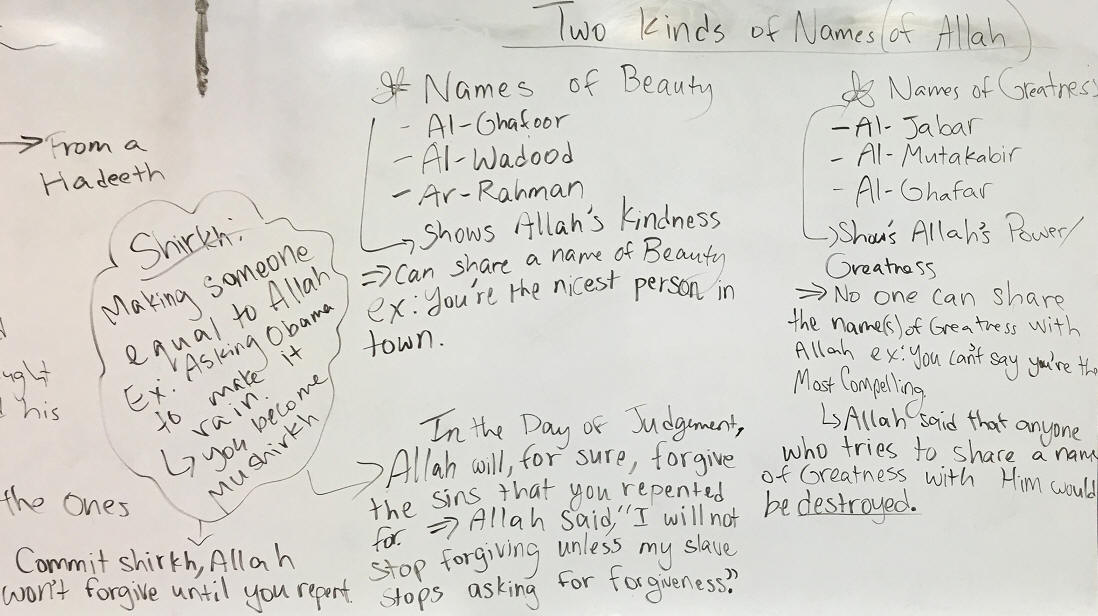 Two Kinds of Names (of Allah)
Names of Beauty
- Al-Ghafoor
- Al-Wadood
- Ar-Rahman
→ Shows Allah's Kindness
⇒ Can share a name of Beauty
ex: You're the nicest person in
town.
Names of Greatness
- Al-Jabar
- Al-Mutakabir
- Al-Ghafar
→ Show's Allah's Power/
Greatness
⇒ No one can share
the name(s) of Greatness with
Allah ex: You can't say you're the
Most Compelling
↳ Allah said that anyone
who tries to share a name
of Greatness with Him would
be destroyed.
→ From a
Hadeeth
Shirkh:
Making someone
equal to Allah
Ex: Asking Obama
to make it
rain.
↳ you become
Mushirkh
his
the Ones
Commit shirkh, Allah
won't forgive until you repent.
In the Day of Judgement,
Allah will, for sure, forgive
the sins that you repented
for. ⇒ Allah said, "I will not
stop forgiving unless my slave
stops asking for forgiveness."